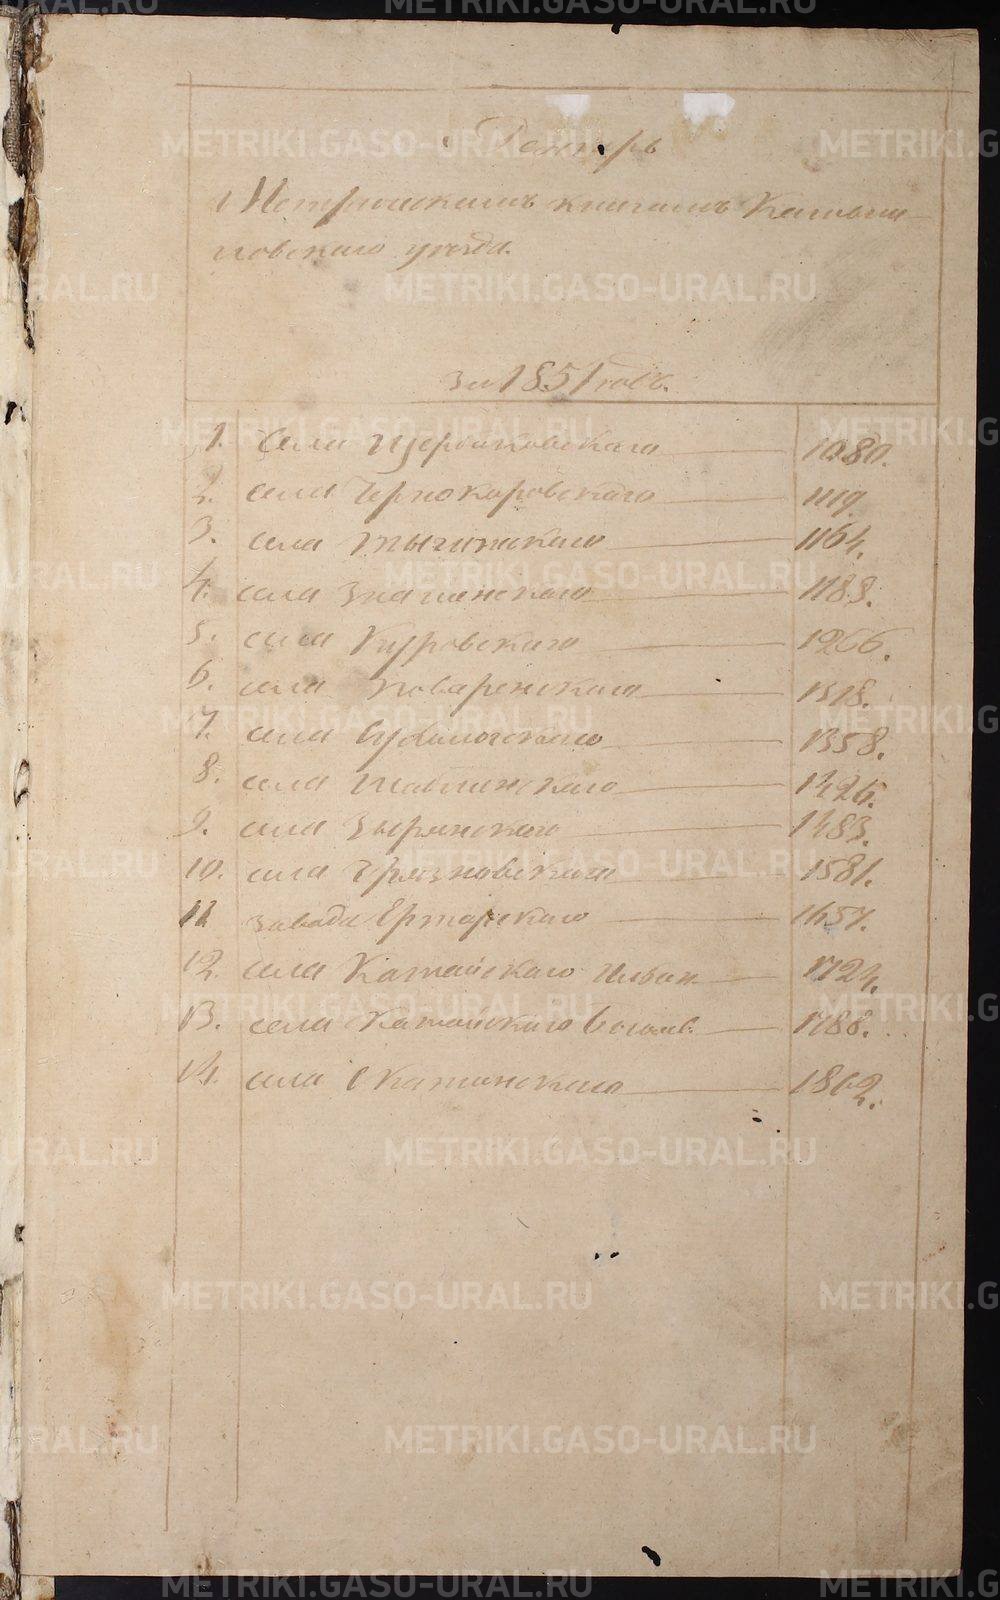 METRIKI.GASO-URAL.RU
Реэстръ
Метрическимъ книгамъ Камыш-
ловскаго уѣзда.
за 1851 годъ.
1. Села Щербаковскаго 1080.
2. села Чернокоровскаго 1119.
3. села Тыгишскаго 1164.
4. села Знаменскаго 1183.
5. села Куровскаго 1266.
6. села Новаренскаго 1318.
7. села 1358.
8. села Шаблинскаго 1426.
9. села Зырянскаго 1483.
10. села Грязновскаго 1581.
11 завода Ертарскаго 1657.
12. села Катайскаго Ильин. 1724.
13. села Катайскаго Богояв. 1788.
14. села Скатинскаго 1862.